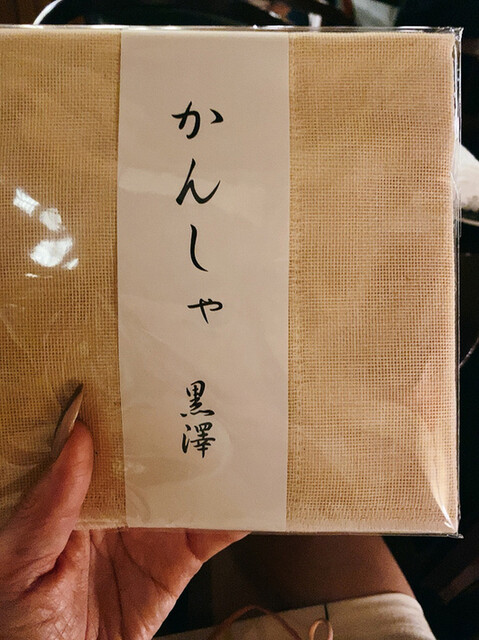 かんしゃ
黒澤